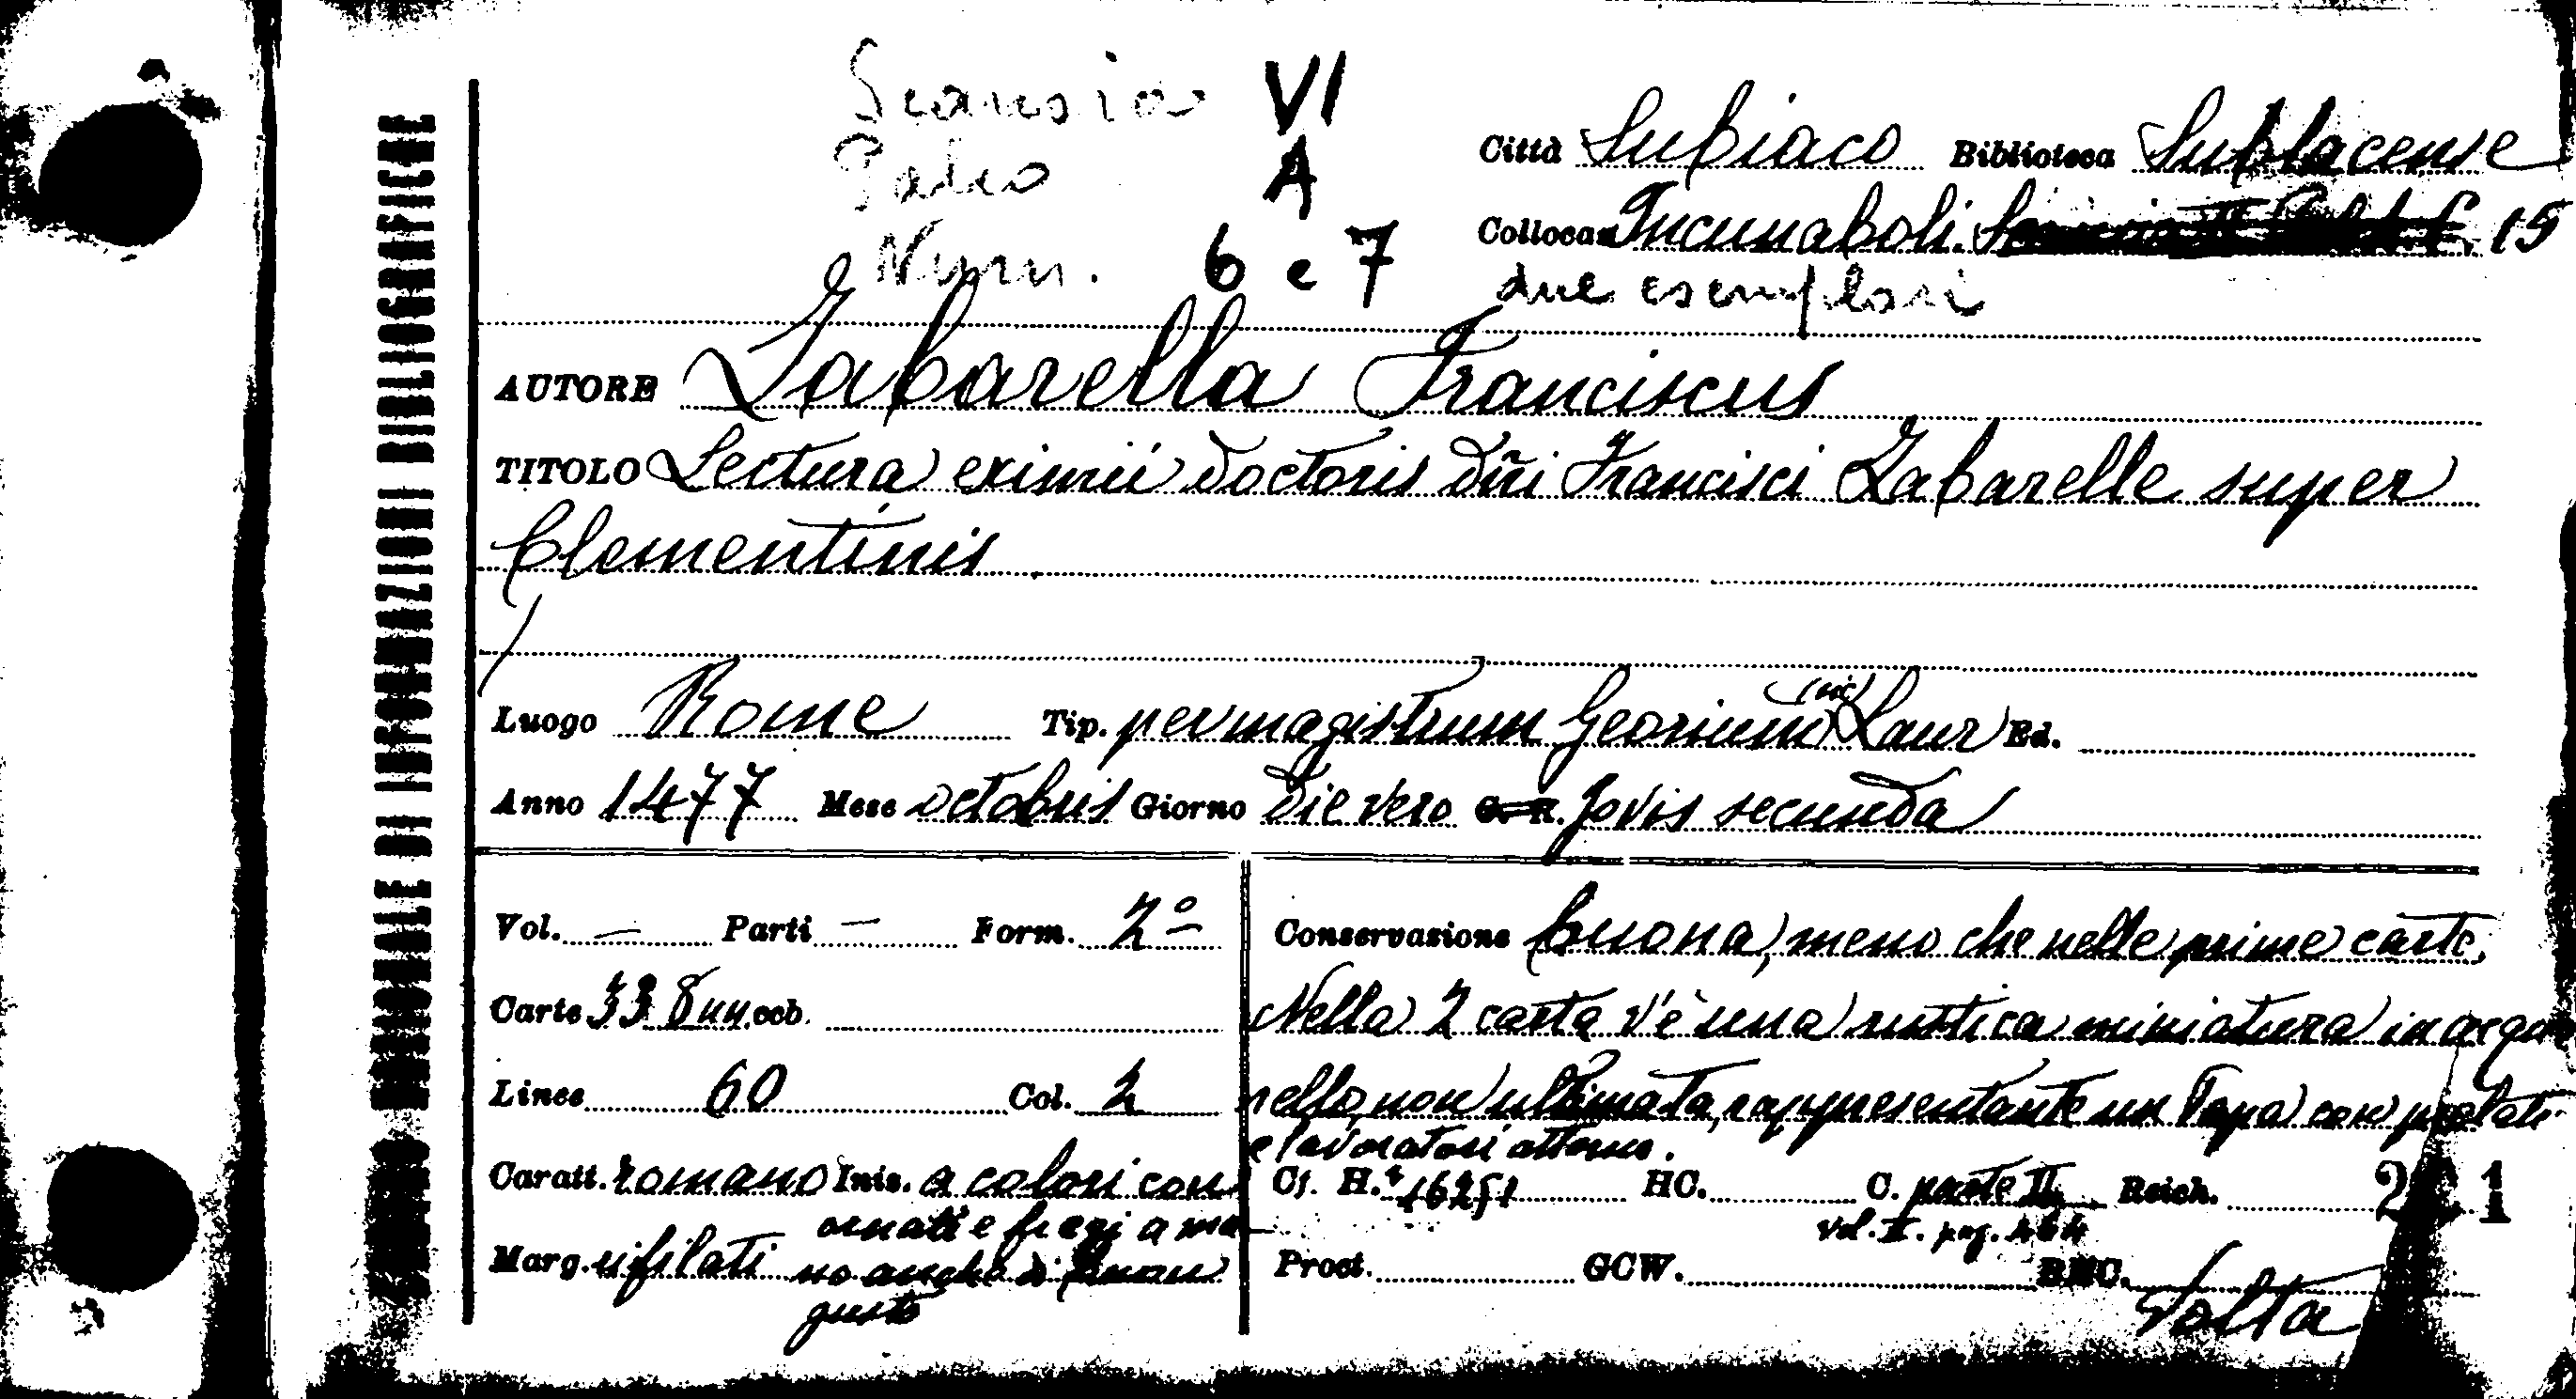 Scansia VI
Palco A
Num. 6 e 7
Città Sublaco Biblioteca Sublacense
Collocaz. Incunaboli. 15
due esemplari
AUTORE Zabarella Franciscus
TITOLO Lectura eximii doctoris dñi Francisci Zabarelle super
Clementinis
Luogo Rome Tip. per magistrum Georium (sic) Laur Ed.
Anno 1477 Mese octobris Giorno die vero Jovis secunda
Vol. — Parti — Form. 2º
Carte 338 nn. ccb.
Linee 60 Col. 2
Caratt. romano Iniz. a colori con
ornati e fregi a ma-
Marg. rifilati no anche di buon
gusto
Conservazione buona, meno che nelle prime carte.
Nella 2 carta v'è una rustica miniatura in acque
rello, non ultimata, rappresentante un Papa con prelati
e lavoratori attorno.
Cf. H. * 16251 HC. C. parte II Reich.
vol. II. pag. 464
Proct. GCW. BMC.
Volta
CENTRO NAZIONALE DI INFORMAZIONI BIBLIOGRAFICHE